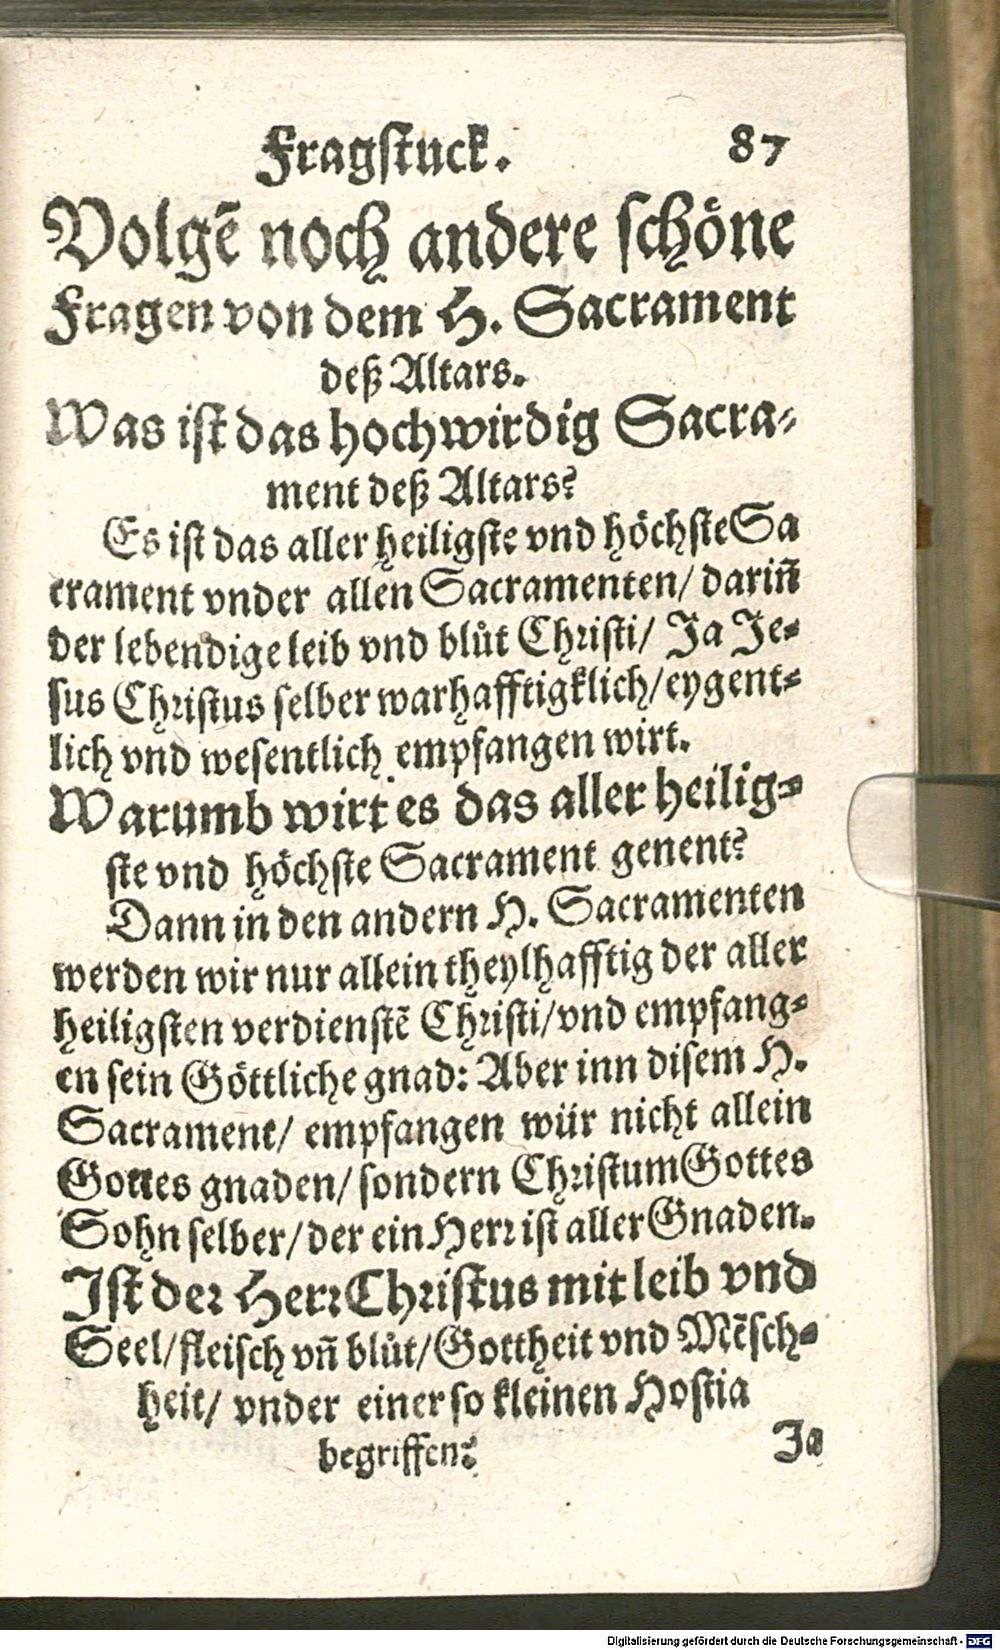 Fragſtuck. 87
Volgẽ noch andere ſchöne
Fragen von dem H. Sacrament
deß Altars.
Was iſt das hochwirdig Sacra-
ment deß Altars?
Es iſt das aller heiligſte vnd höchſte Sa
crament vnder allen Sacramenten/ dariñ
der lebendige leib vnd blůt Chriſti/ Ja Je-
ſus Chriſtus ſelber warhafftigklich/ eygent-
lich vnd weſentlich empfangen wirt.
Warumb wirt es das aller heilig-
ſte vnd höchſte Sacrament genent?
Dann in den andern H. Sacramenten
werden wir nur allein theylhafftig der aller
heiligſten verdienſtẽ Chriſti/ vnd empfang-
en ſein Göttliche gnad: Aber inn diſem H.
Sacrament/ empfangen wür nicht allein
Gottes gnaden/ ſondern Chriſtum Gottes
Sohn ſelber/ der ein Herr iſt aller Gnaden.
Iſt der Herr Chriſtus mit leib vnd
Seel/ fleiſch vñ blůt/ Gottheit vnd Mẽſch-
heit/ vnder einer ſo kleinen Hoſtia
begriffen?
Ja
Digitalisierung gefördert durch die Deutsche Forschungsgemeinschaft - DFG